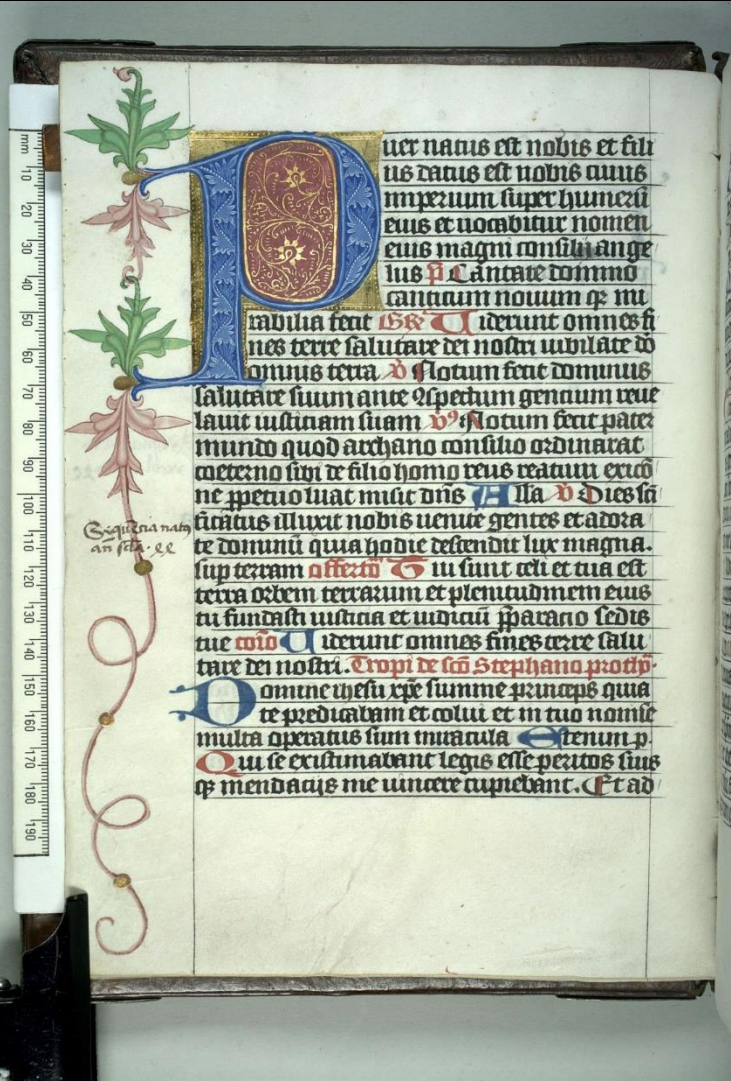 Puer natus est nobis et fili
us datus est nobis cuius
imperium super humerū
eius et uocabitur nomen
eius magni consilij ange
lus p̄ Cantate domino
canticum nouum qꝫ mi
rabilia fecit Uiderunt omnes fi
nes terre salutare dei nostri iubilate dō
omnis terra v̄ Notum fecit dominus
salutare suum ante ꝯspectum gentium reue
lauit iusticiam suam vꝰ Notum fecit pater
mundo quod archano consilio ordinarat
coeterno sibi de filio homo reus reatuu exicō
ne ꝑpetuo luat misit dn̄s Alla v̄ Dies sc̄i
ficatus illuxit nobis uenite gentes et adora
te dominū quia hodie descendit lux magna.
sup terram offertō Tui sunt celi et tua est
terra orbem terrarum et plenitudinem eius
tu fundasti iusticia et iudiciū p̄paracio sedis
tue cōio Uiderunt omnes fines terre salu
tare dei nostri. Tropi de scō Stephano prothy.
Domine ihesu xp̄e summe princeps quia
te predicabam et colui et in tuo nomīe
multa operatus sum miracula Etenim p.
Qui se existimabant legis esse peritos suis
qꝫ mendacijs me uincere cupiebant. Et ad
mm
10
20
30
40
50
60
70
80
90
100
110
120
130
140
150
160
170
180
190